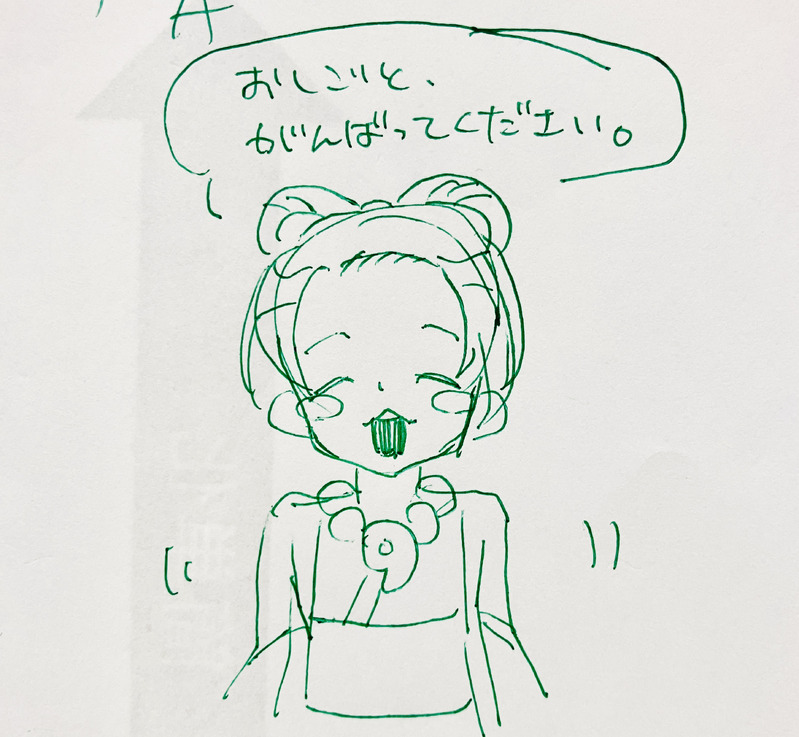 A
おしごと、
がんばってください。